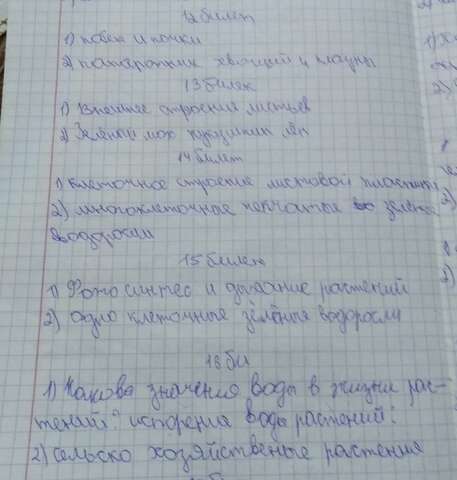 12 билет
1) побег и почки
2) папаротник хвощий и плауны
13 билет
1) Внешнее строение листьев
2) Зелёный мох кукушкин лён
14 билет
1) клеточное строение листовой пластинки
2) многоклеточные зелёные
водоросли
15 билет
1) Фотосинтес и дыхание растений
2) одно клеточные зелёные водоросли
16 би
1) Каково значения воды в жизни рас-
тений? испорения воды растений?
2) сельско хозяйственые растения